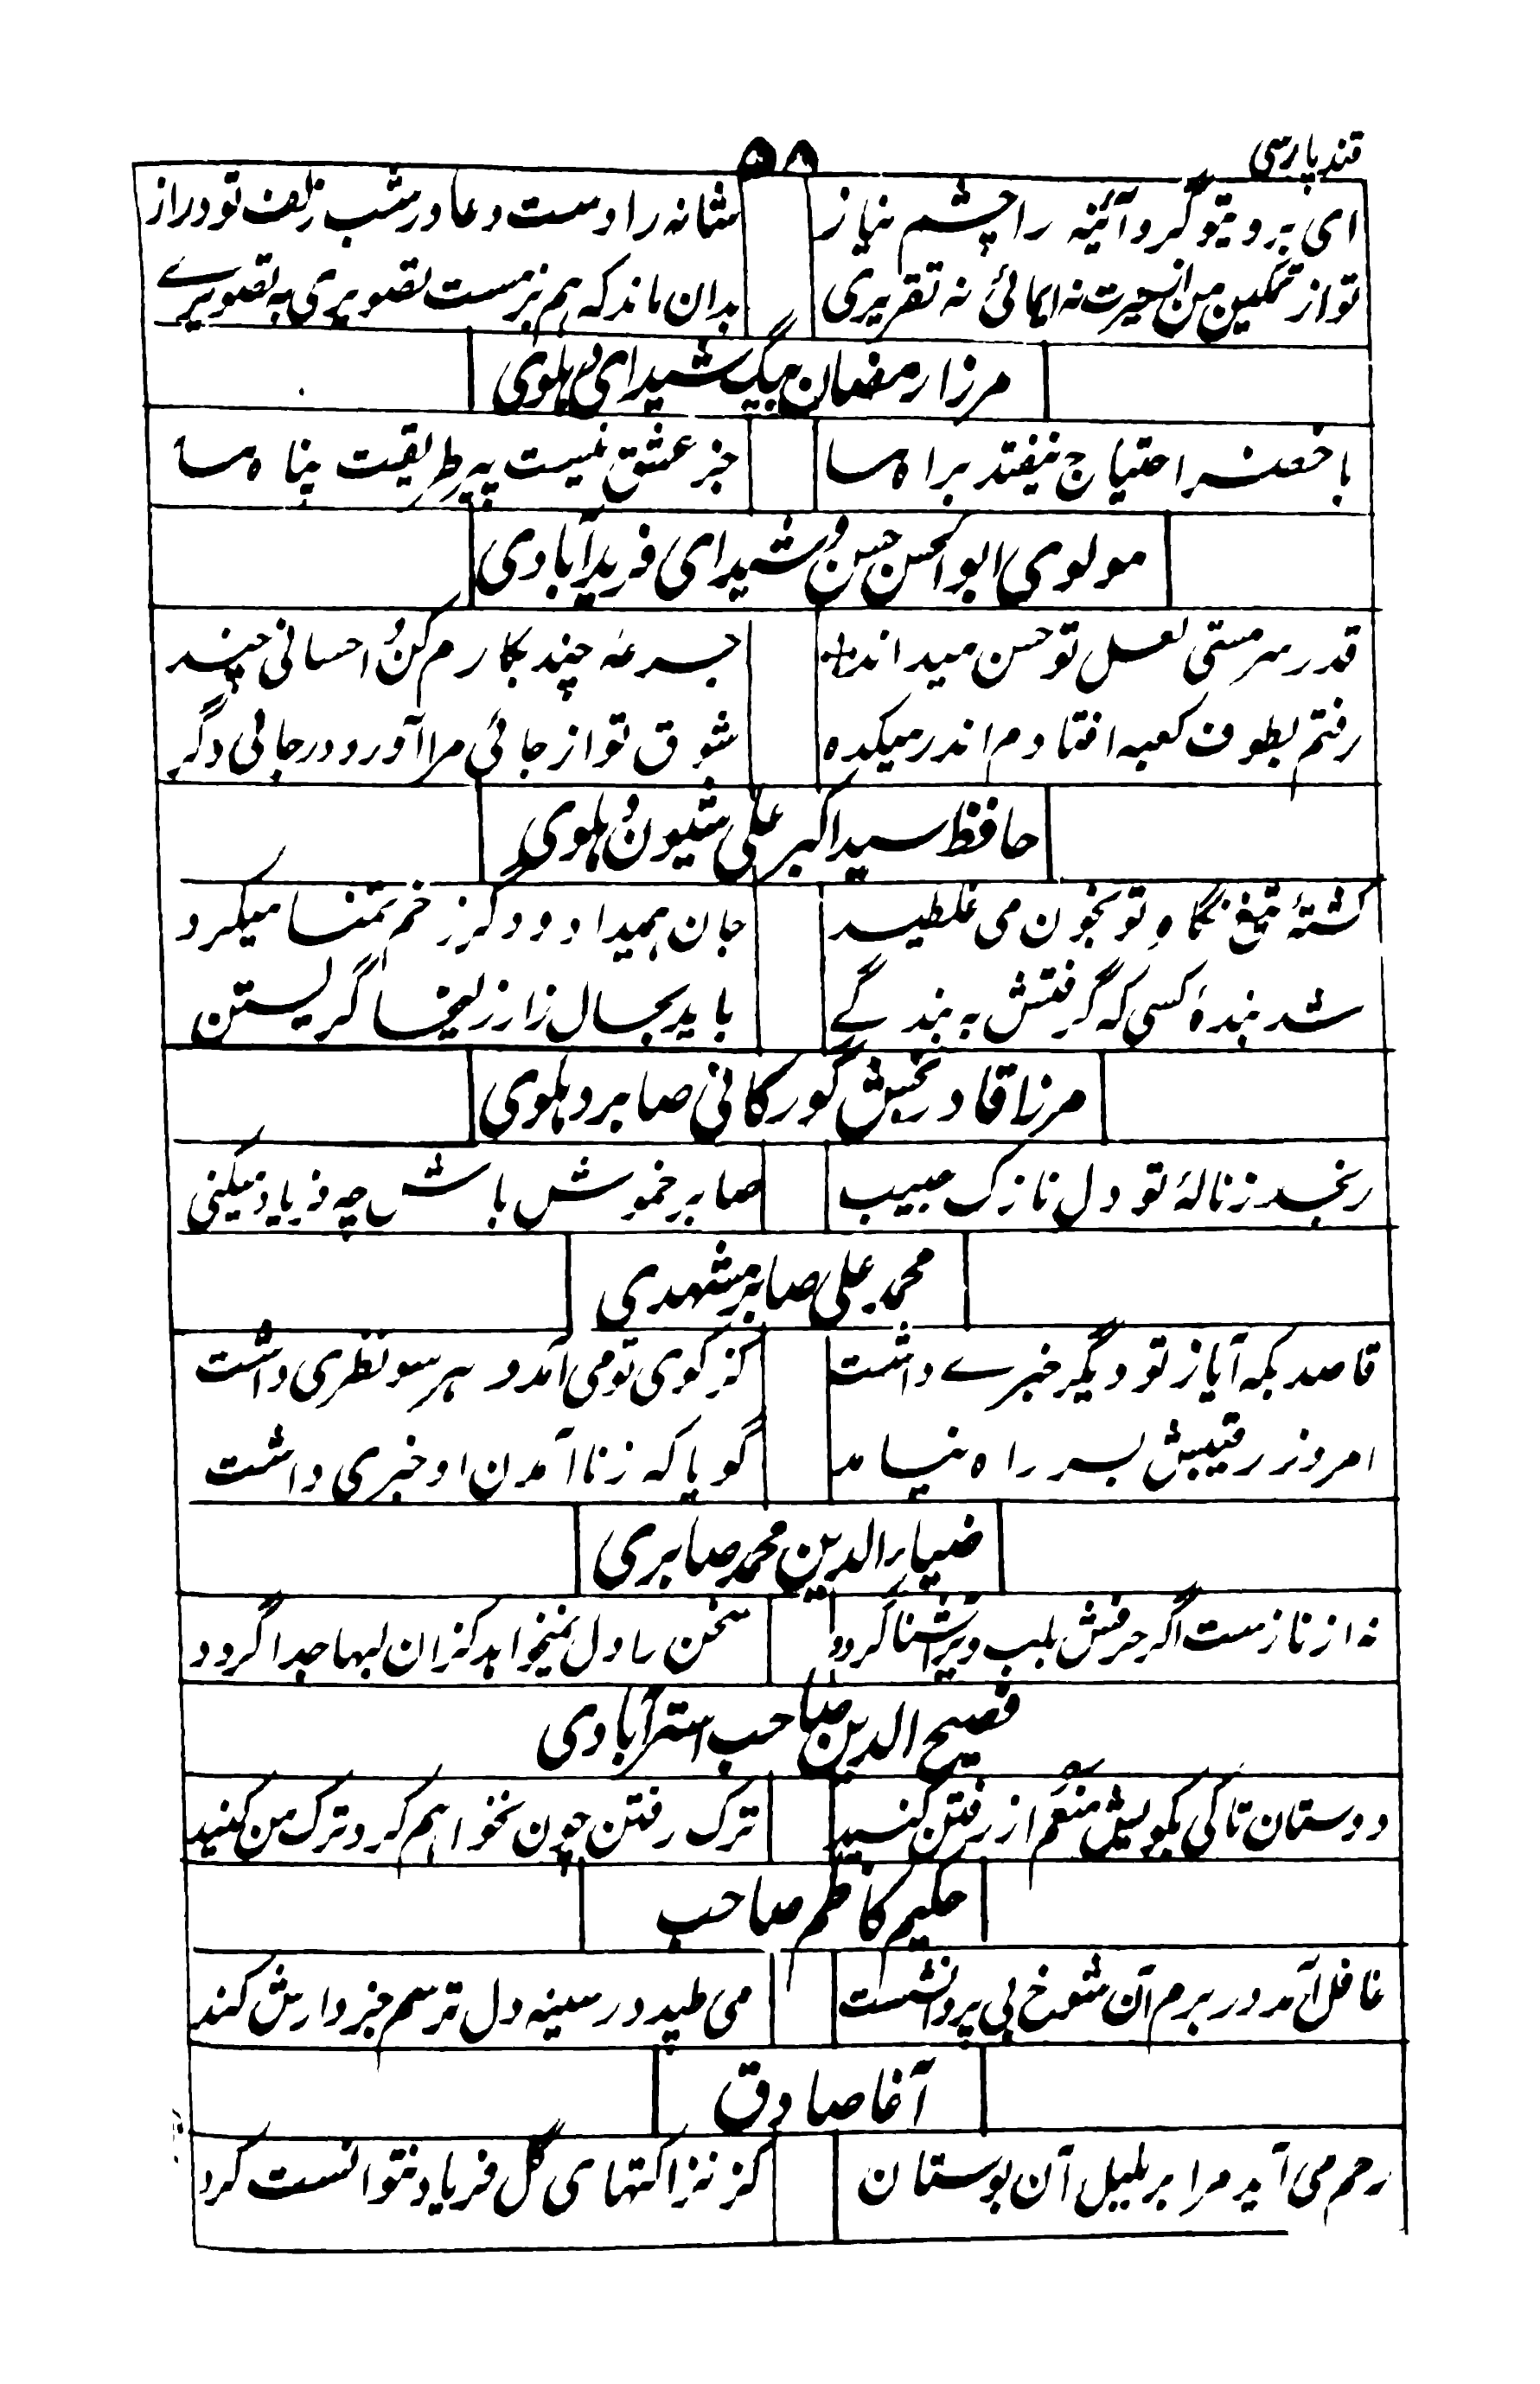 قند پارسی
۵۸
ای برویتو گرد آئینه را چشم نیاز شانه را دست دعا در شب زلف تو دراز
تو از تمکین من از حیرت نه ایمائی نه تقریری بدان ماند که هم بزمست تصویری به تصویرے
مرزا رمضان بیگ شیدای دہلوی
با خضر احتیاج نیفتد براہ ما جز عشق نیست پیر طریقت پناہ ما
مولوی ابوالحسن حسن و شیدای فریدآبادی
قدر سرمستی لعل تو حسن میداند جرعۂ چند بکارم کن و احسانی چند
رفتم بطوف کعبه افتادم اندر میکده شوق تو از جائی مرا آورد در جائی دگر
حافظ سید اکبر علی شیون دہلوی
کشتۂ تیغ نگاہِ تو بخون می غلطید جان ہمیداد و دگر زخم تمنا میکرد
شد بندۂ کسی که گرفتش به بندگے باید بحال زار زلیخا گریستن
مرزا قادر بخش گورکانی صابر دہلوی
رنجد ز نالۂ تو دل نازک حبیب صابر خموش باش چه فریاد میکنی
محمد علی صابر مشهدی
قاصد بکه آیا ز تو دیگر خبرے داشت کز کوی تو می آمد و هر سو نظری داشت
امروز رقیبش بسر راه نیامد گویا که ز نا آمدن او خبری داشت
ضیاء الدین محمد صابری
نه از نازست اگر حرفش بلب دیر آشنا گردد سخن را دل نمیخواهد کزان لبها جدا گردد
فصیح الدین صاحب استرآبادی
دوستان تا کی بکویش منعم از رفتن کنید ترک رفتن چون نخواهم کرد ترک من کنید
حکیم کاظم صاحب
غافل آمد در برم آن شوخ بی پروا نشست می طپد در سینه دل ترسم خبردارش کند
آغا صادق
رحم می آید مرا بر بلبل آن بوستان کز نزاکتهای گل فریاد نتوانست کرد